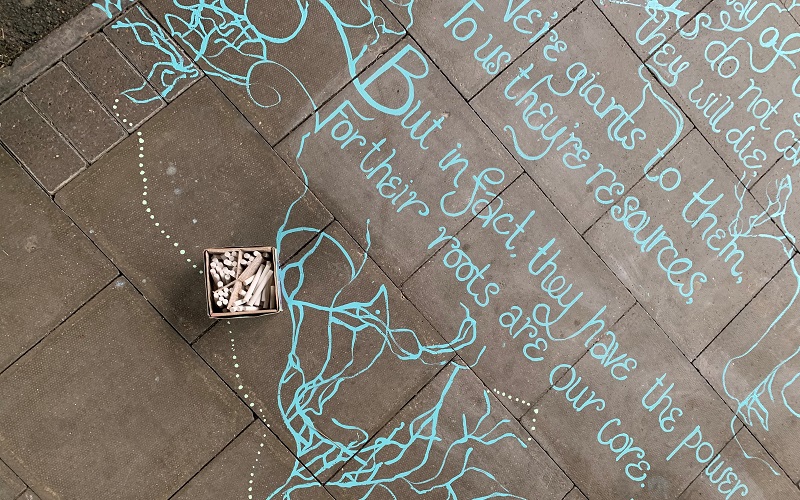 do not
they will die,
We're giants to them,
To us they're resources,
But in fact, they have the power
For their roots are our core.